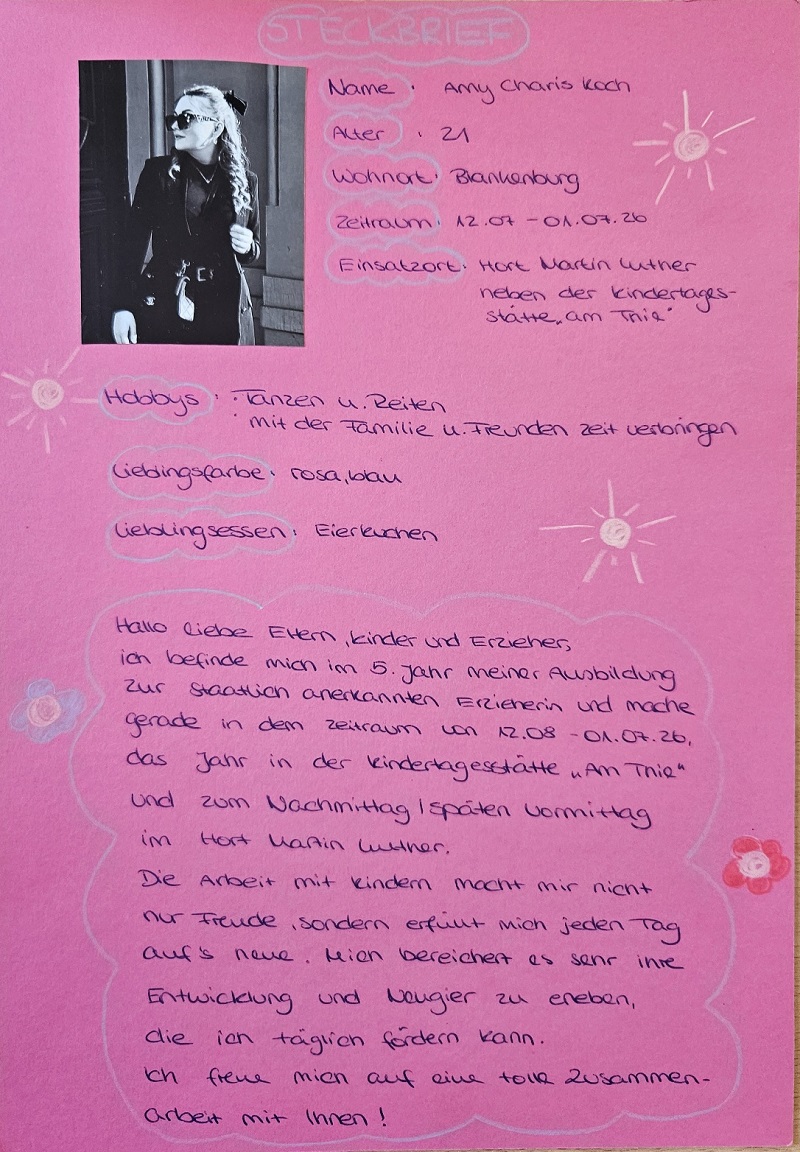 STECKBRIEF
Name : Amy Charis Koch
Alter : 21
Wohnort : Blankenburg
Zeitraum : 12.07 - 01.07.26
Einsatzort : Hort Martin Luther
neben der Kindertages-
stätte „am Thie"
Hobbys : · Tanzen u. Reiten
· mit der Familie u. Freunden zeit verbringen
Lieblingsfarbe : rosa, blau
Lieblingsessen : Eierkuchen
Hallo liebe Eltern, Kinder und Erzieher,
ich befinde mich im 5. Jahr meiner Ausbildung
zur staatlich anerkannten Erzieherin und mache
gerade in dem Zeitraum von 12.08 - 01.07.26,
das Jahr in der Kindertagesstätte „Am Thie"
und zum Nachmittag / späten Vormittag
im Hort Martin Luther.
Die Arbeit mit Kindern macht mir nicht
nur Freude, sondern erfüllt mich jeden Tag
auf's neue. Mich bereichert es sehr ihre
Entwicklung und Neugier zu erleben,
die ich täglich fördern kann.
Ich freue mich auf eine tolle Zusammen-
arbeit mit Ihnen!